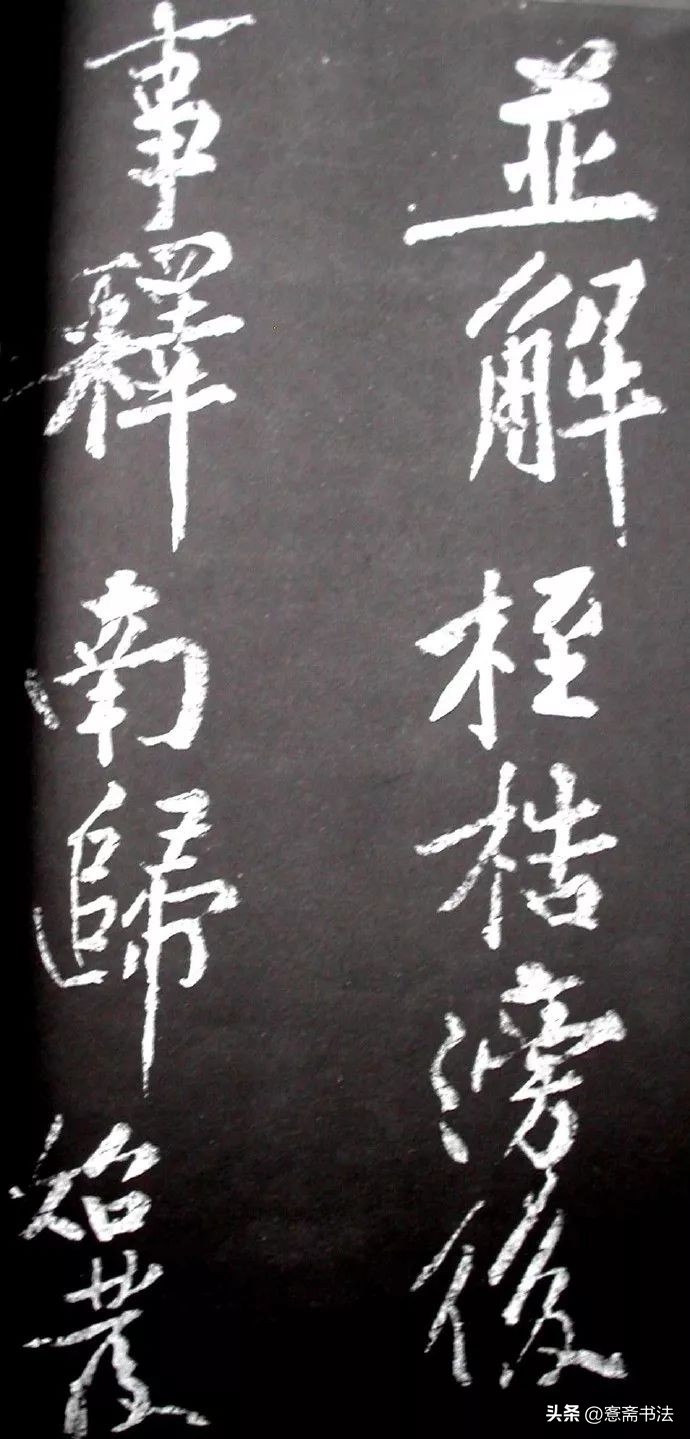 並解桎梏滂後
事釋南歸始發
头条@愙斋书法